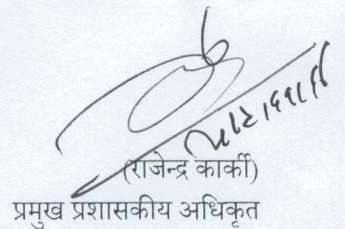 (राजेन्द्र कार्की)
प्रमुख प्रशासकीय अधिकृत